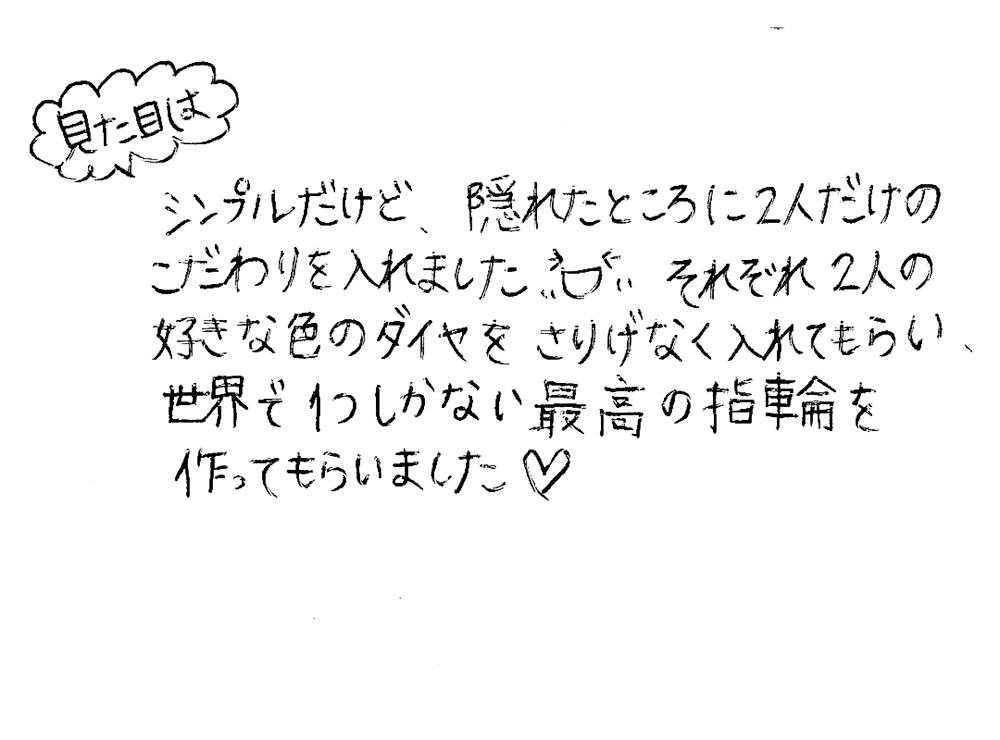 見た目は
シンプルだけど、隠れたところに2人だけの
こだわりを入れました それぞれ2人の
好きな色のダイヤをさりげなく入れてもらい、
世界で1つしかない最高の指輪を
作ってもらいました♡